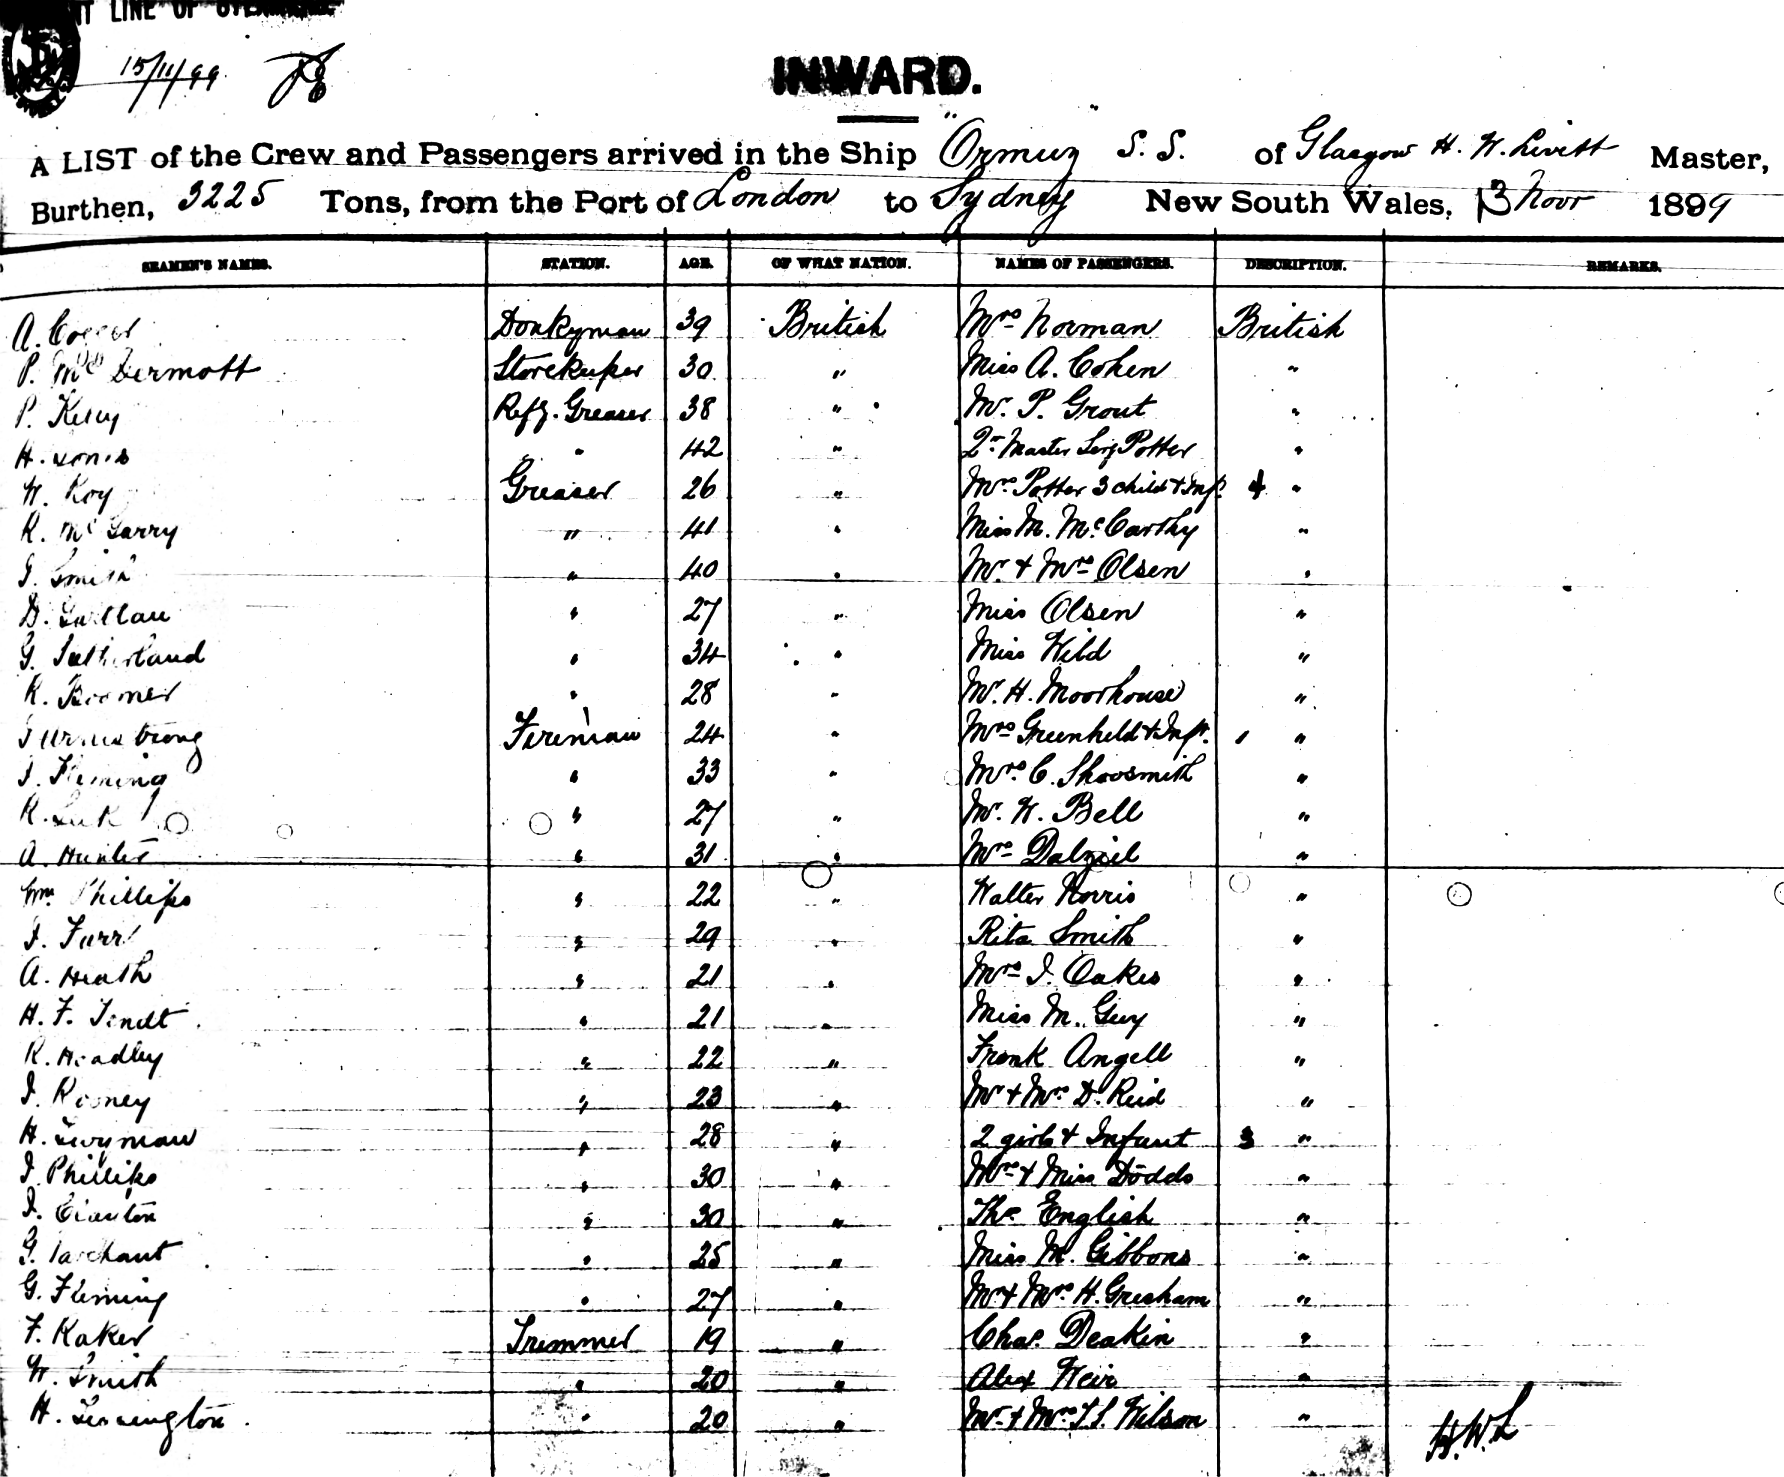 NT LINE OF
15/11/99
INWARD.
A LIST of the Crew and Passengers arrived in the Ship "Ormuz" S.S. of Glasgow H. W. Livitt Master,
Burthen, 3225 Tons, from the Port of London to Sydney New South Wales, 13 Novr 1899
SEAMEN'S NAMES. STATION. AGE. OF WHAT NATION. NAMES OF PASSENGERS. DESCRIPTION. REMARKS.
A. Donkyman 39 British Mrs Norman British
P. McDermott Storekeeper 30 " Miss A. Cohen "
P. Refg. Greaser 38 " Mr. P. Grout "
H. Jones " 42 " 2- Master Potter "
W. Roy Greaser 26 " Mrs Potter 3 child + Inft. 4 "
R. McGarry " 41 " Miss M. McCarthy "
J. Smith " 40 " Mr. + Mrs Olsen "
D. " 27 " Miss Olsen "
G. Sutherland " 34 " Miss Wild "
R. " 28 " Mr. H. Moorhouse "
J Armstrong Fireman 24 " Mrs Greenheld + Inft. 1 "
J. Fleming " 33 " Mrs. C. Shoosmith "
R. " 27 " Mr. W. Bell "
A. Hunter " 31 " Mrs Dalziel "
Wm. Phillips " 22 " Walter Norris "
J. Farr " 29 " Rita Smith "
A. Heath " 21 " Mrs J. Oakes "
H. F. " 21 " Miss M. Guy "
R. Headley " 22 " Frank Angell "
J. Rooney " 23 " Mr + Mrs. D. Reid "
H. Twyman " 28 " 2 girls + Infant 3 "
J. Phillips " 30 " Mrs + Miss Dodds "
J. " 30 " Thos. English "
G. " 25 " Miss M. Gibbons "
G. Fleming " 27 " Mr + Mrs. H. Gresham "
F. Raker Trimmer 19 " Chas. Deakin "
W. Smith " 20 " Alex Weir "
H. " 20 " Mr + Mrs Wilson "
H.W.L